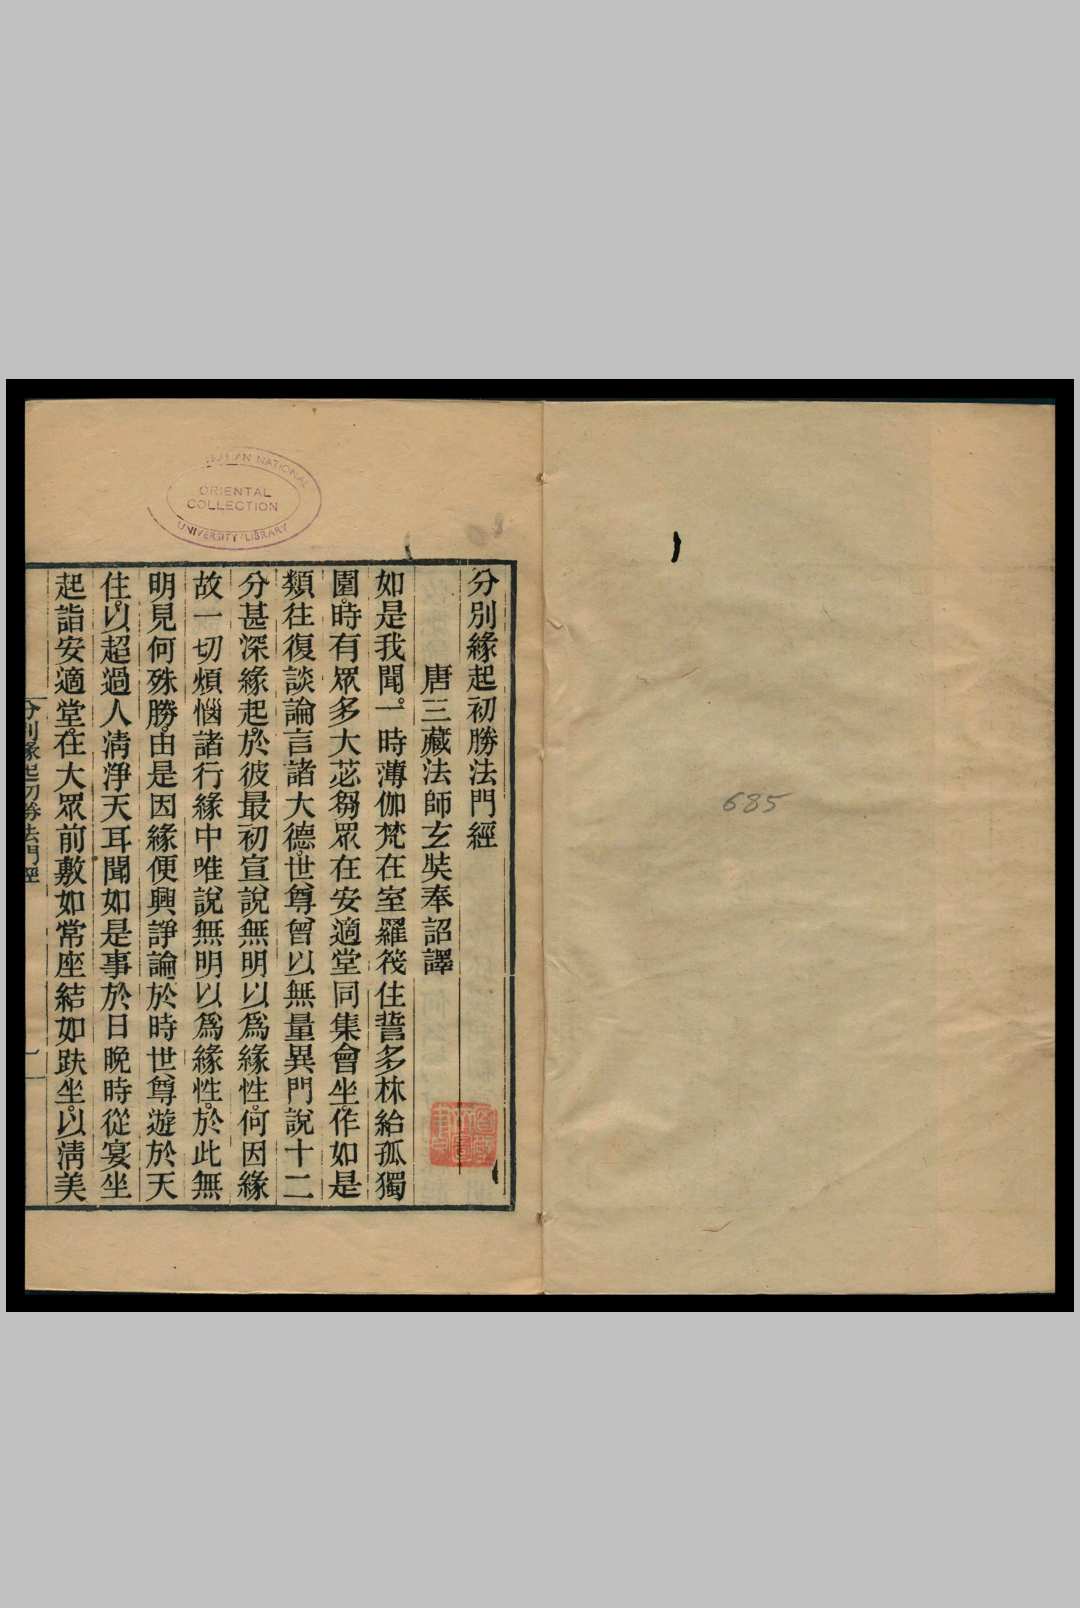 685
分別緣起初勝法門經
唐三藏法師玄奘奉詔譯
如是我聞。一時薄伽梵在室羅筏住誓多林給孤獨
園。時有眾多大苾芻眾在安適堂同集會坐。作如是
類往復談論言諸大德。世尊曾以無量異門說十二
分甚深緣起。於彼最初宣說無明以為緣性。何因緣
故一切煩惱諸行緣中唯說無明以為緣性。於此無
明見何殊勝。由是因緣便興諍論。於時世尊遊於天
住。以超過人清淨天耳聞如是事於日晚時從宴坐
起詣安適堂。在大眾前敷如常座結如趺坐。以清美
分別緣起初勝法門經
一
NATIONAL
ORIENTAL
COLLECTION
UNIVERSITY LIBRARY